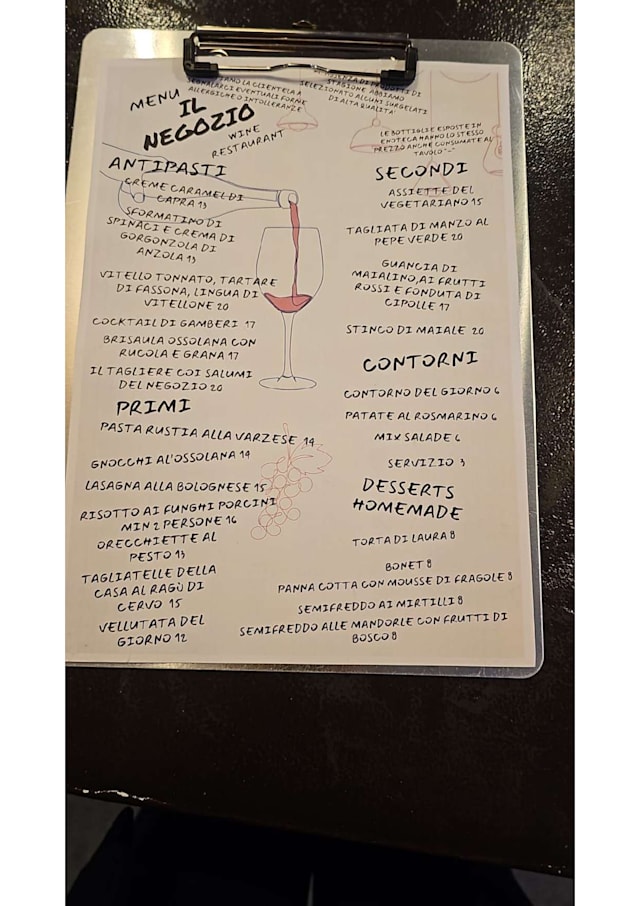 MENU
IL
NEGOZIO
WINE
RESTAURANT
LA CLIENTELA A
SEGNALARCI EVENTUALI FORME
ALLERGICHE O INTOLLERANZE
DI PRODOTTI DI
STAGIONE ABBIAMO
SELEZIONATO ALCUNI SURGELATI
DI ALTA QUALITA'
LE BOTTIGLIE ESPOSTE IN
ENOTECA HANNO LO STESSO
PREZZO ANCHE CONSUMATE AL
TAVOLO
ANTIPASTI
CREME CARAMEL DI
CAPRA 13
SFORMATINO DI
SPINACI E CREMA DI
GORGONZOLA DI
ANZOLA 13
VITELLO TONNATO, TARTARE
DI FASSONA, LINGUA DI
VITELLONE 20
COCKTAIL DI GAMBERI 17
BRISAULA OSSOLANA CON
RUCOLA E GRANA 17
IL TAGLIERE COI SALUMI
DEL NEGOZIO 20
PRIMI
PASTA RUSTIA ALLA VARZESE 14
GNOCCHI AL'OSSOLANA 14
LASAGNA ALLA BOLOGNESE 15
RISOTTO AI FUNGHI PORCINI
MIN 2 PERSONE 16
ORECCHIETTE AL
PESTO 13
TAGLIATELLE DELLA
CASA AL RAGÙ DI
CERVO 15
VELLUTATA DEL
GIORNO 12
SECONDI
ASSIETTE DEL
VEGETARIANO 15
TAGLIATA DI MANZO AL
PEPE VERDE 20
GUANCIA DI
MAIALINO,AI FRUTTI
ROSSI E FONDUTA DI
CIPOLLE 17
STINCO DI MAIALE 20
CONTORNI
CONTORNO DEL GIORNO 6
PATATE AL ROSMARINO 6
MIX SALADE 6
SERVIZIO 3
DESSERTS
HOMEMADE
TORTA DI LAURA 8
BONET 8
PANNA COTTA CON MOUSSE DI FRAGOLE 8
SEMIFREDDO AI MIRTILLI 8
SEMIFREDDO ALLE MANDORLE CON FRUTTI DI
BOSCO 8